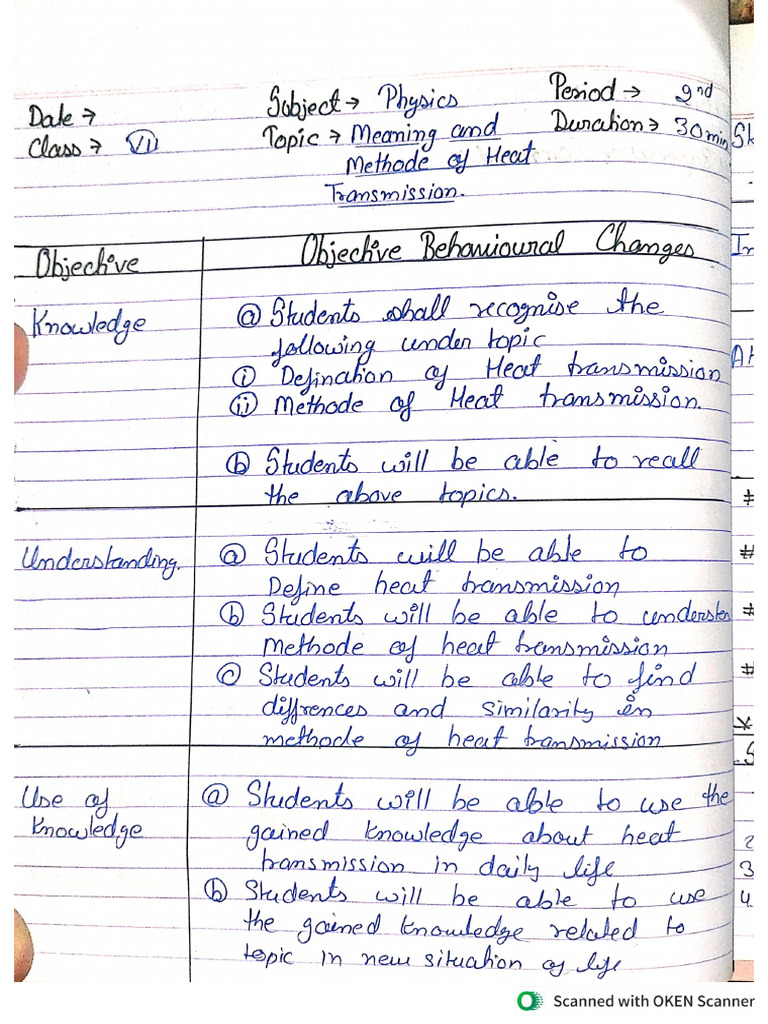 Date → Subject → Physics Period → 2nd
Class → VII Topic → Meaning and Duration → 30 min
Methode of Heat
Transmission.
Objective Objective Behavioural Changes
Knowledge ⓐ Students shall recognise the
following under topic
ⓘ Defination of Heat transmission
(ii) Methode of Heat transmission.
ⓑ Students will be able to recall
the above topics.
Understanding. ⓐ Students will be able to
Define heat transmission
ⓑ Students will be able to understan
Methode of heat transmission
ⓒ Students will be able to find
diffrences and similarity in
methode of heat transmission
Use of ⓐ Students will be able to use the
Knowledge gained knowledge about heat
transmission in daily life
ⓑ Students will be able to use
the gained knowledge related to
topic in new situation of life
Scanned with OKEN Scanner